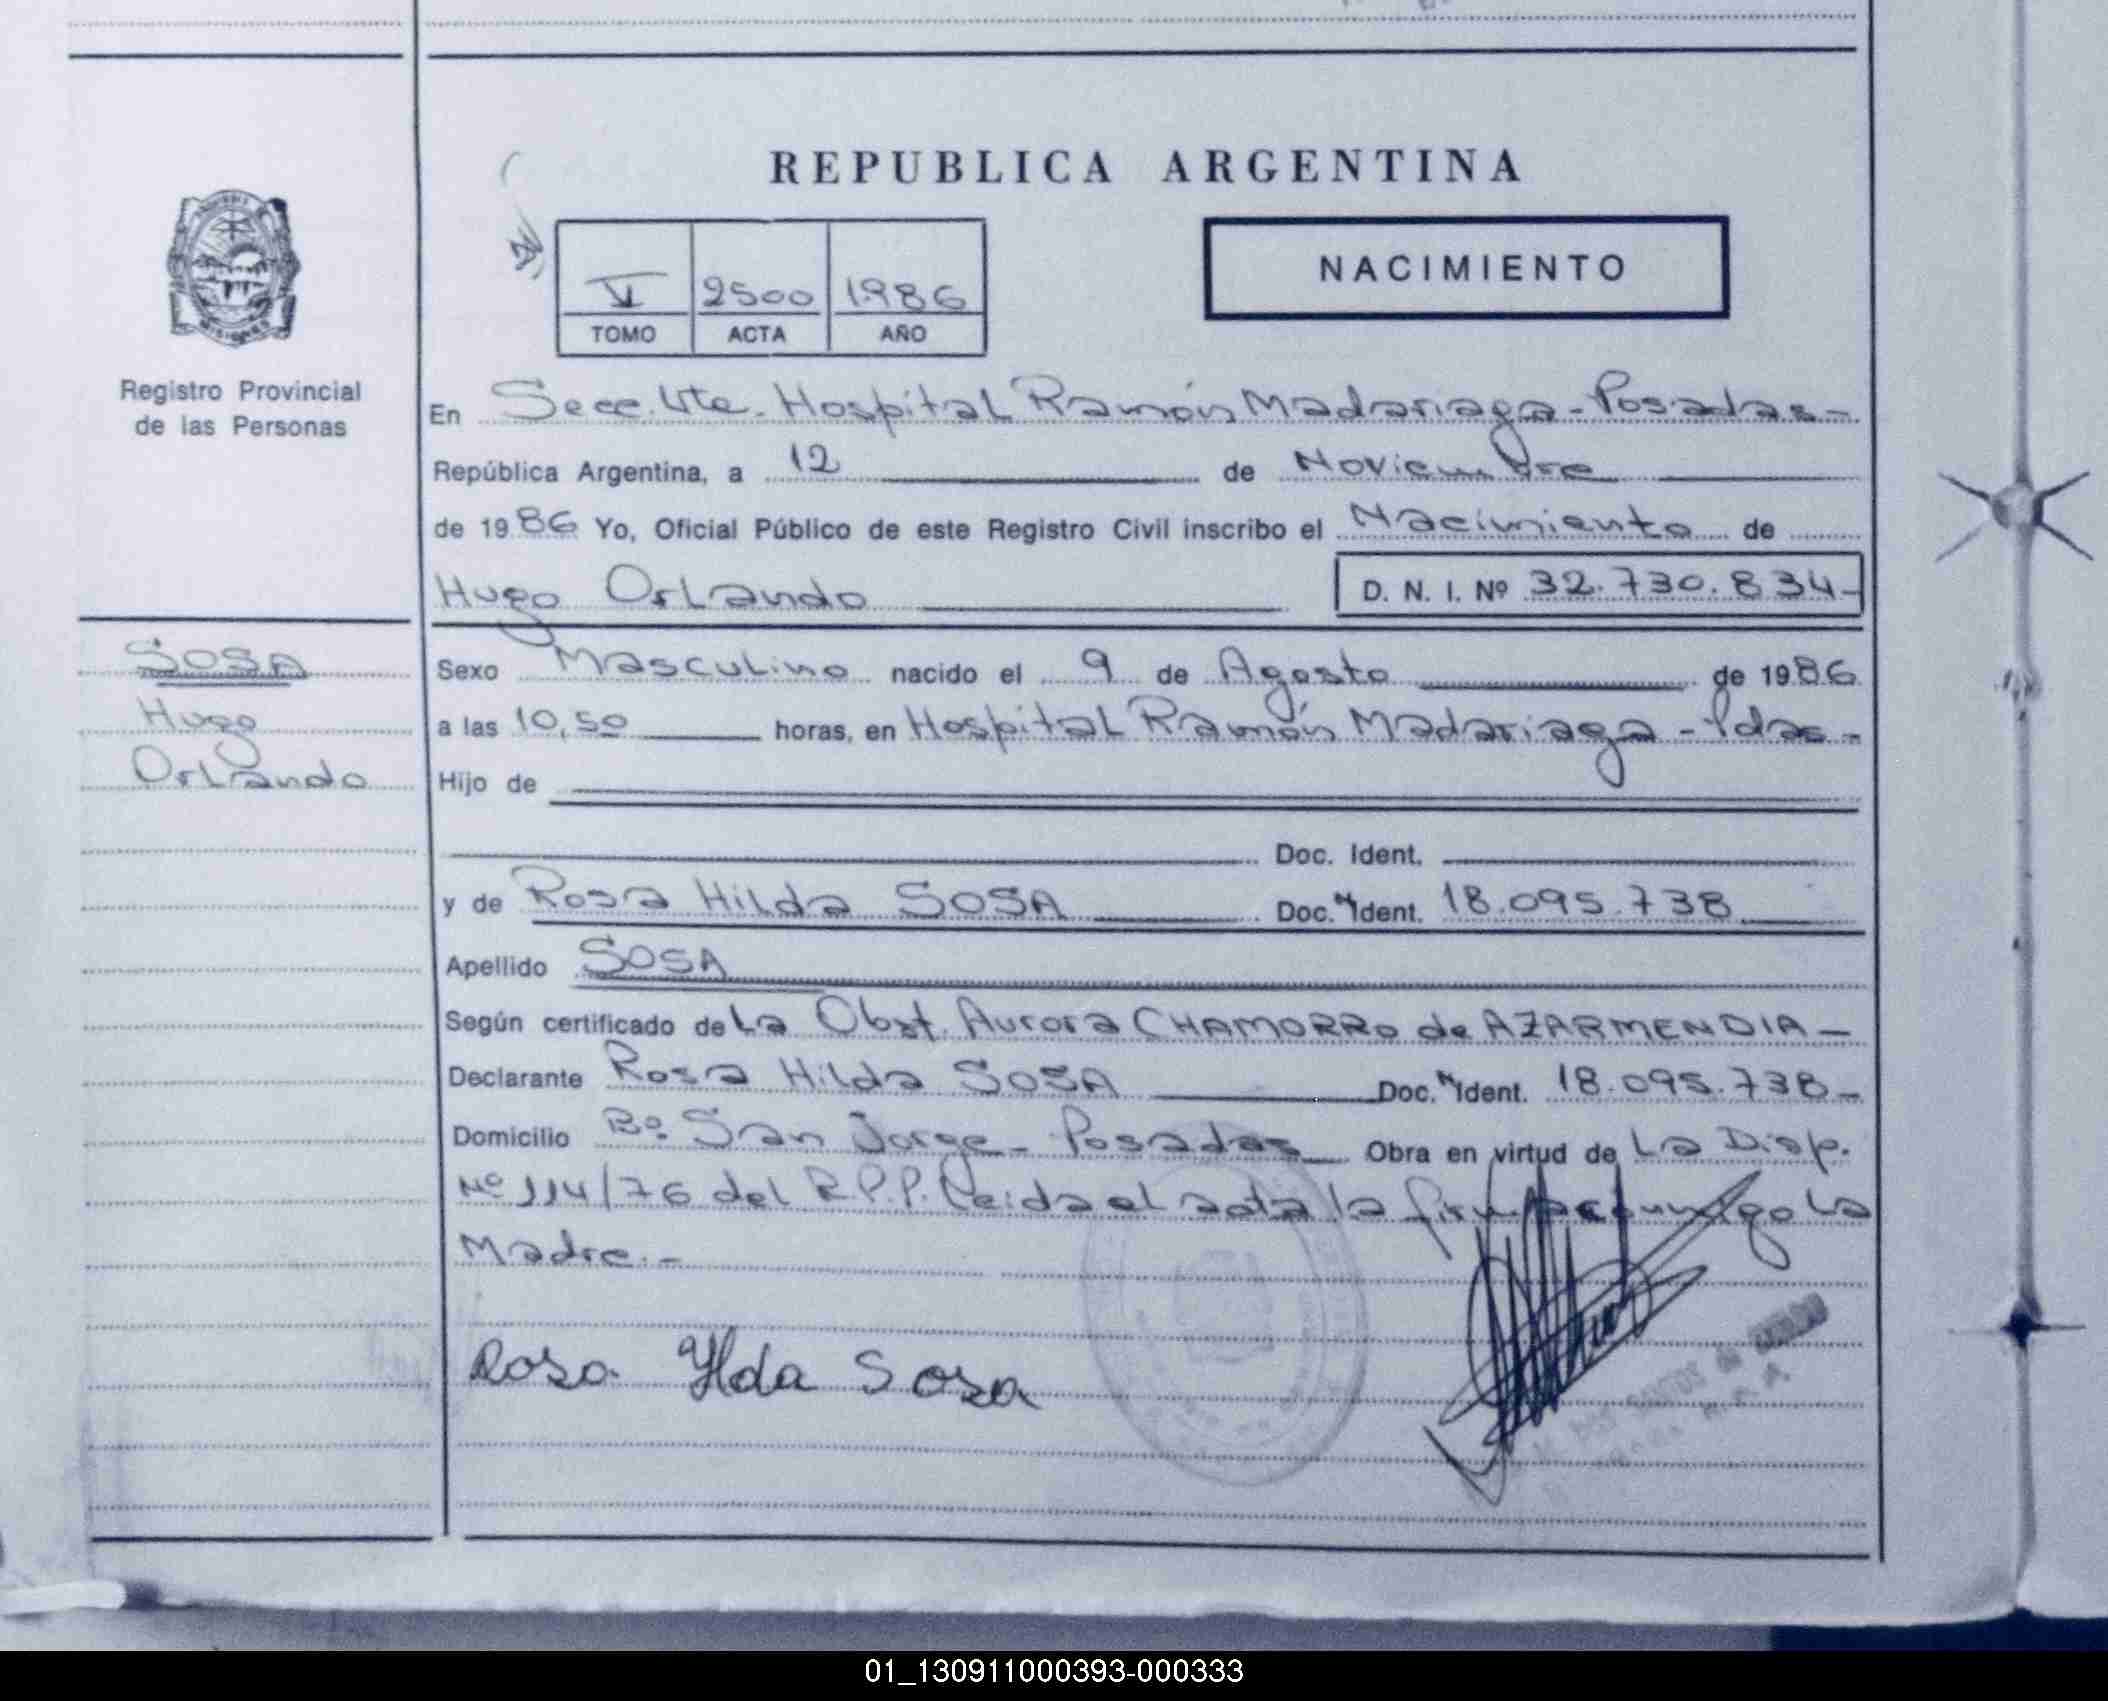 REPUBLICA ARGENTINA
NACIMIENTO
VI 2500 1986
TOMO ACTA AÑO
Registro Provincial
de las Personas
En Secc. Vta. Hospital Ramón Madariaga - Posadas -
República Argentina, a 12 de Noviembre
de 1986 Yo, Oficial Público de este Registro Civil inscribo el Nacimiento de
Hugo Orlando D. N. I. Nº 32.730.834-
SOSA
Hugo
Orlando
Sexo Masculino nacido el 9 de Agosto de 1986
a las 10,50 horas, en Hospital Ramón Madariaga - Pdas -
Hijo de
Doc. Ident.
y de Rosa Hilda SOSA Doc. Ident. 18.095.738
Apellido SOSA
Según certificado de La Obst. Aurora CHAMORRO de AZARMENDIA -
Declarante Rosa Hilda SOSA Doc. Ident. 18.095.738-
Domicilio Bº San Jorge - Posadas Obra en virtud de La Disp.
Nº 114/76 del R.P.P. Leida el acta la firma conmigo La
Madre.-
Rosa Ylda Sosa
DOS SANTOS de
01_130911000393-000333